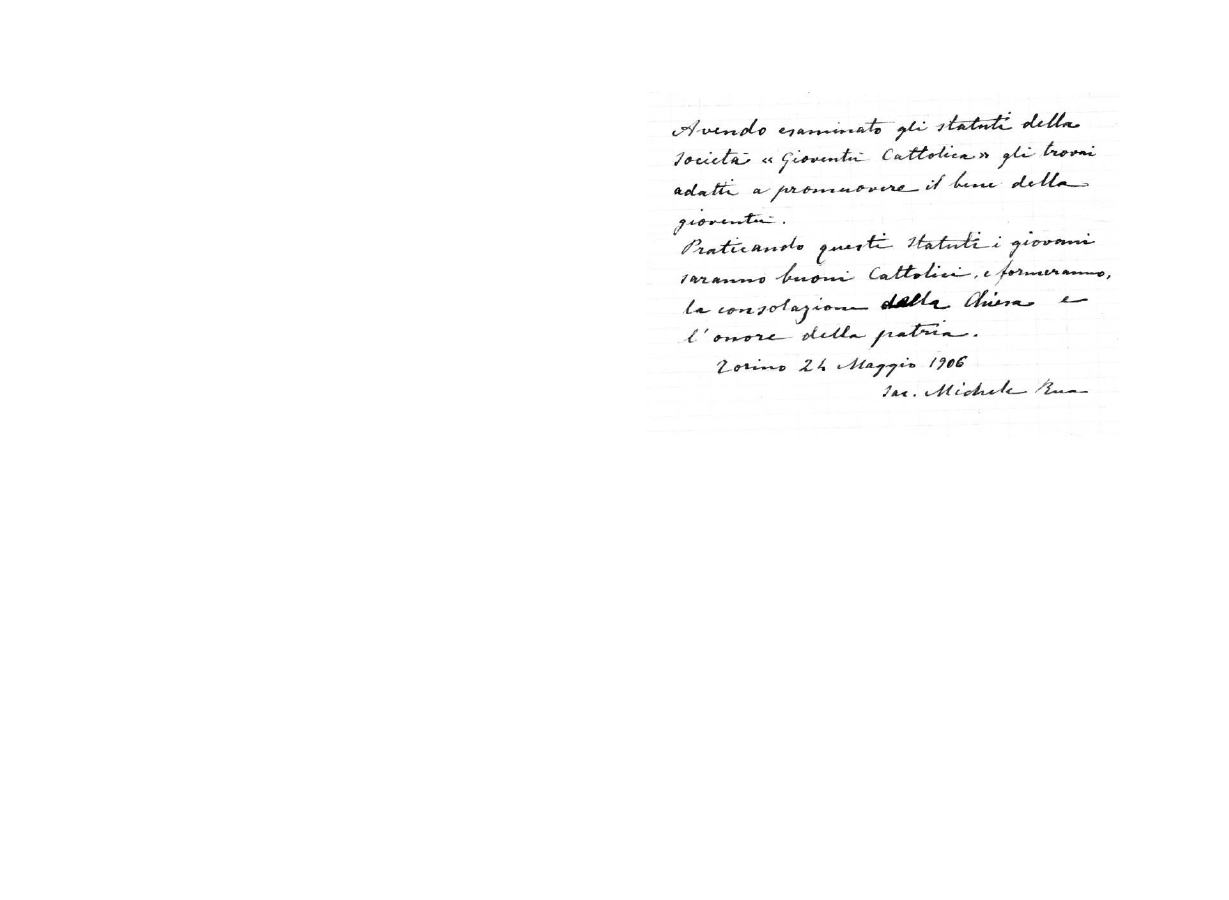 Avendo esaminato gli statuti della
società « Gioventù Cattolica » gli trovai
adatti a promuovere il bene della
gioventù.
Praticando questi statuti i giovani
saranno buoni Cattolici, e formeranno,
la consolazione della Chiesa e
l'onore della patria.
Torino 24 Maggio 1906
Sac. Michele Rua